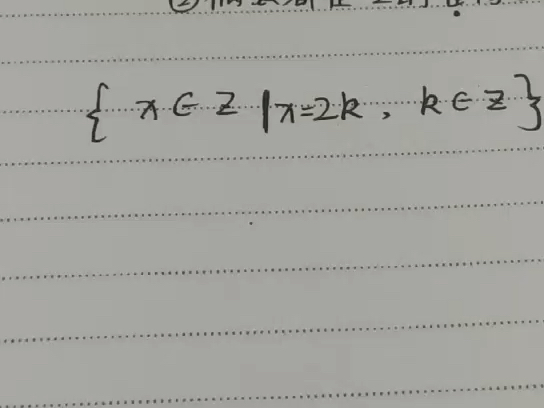 { x ∈ Z | x=2k , k ∈ Z }